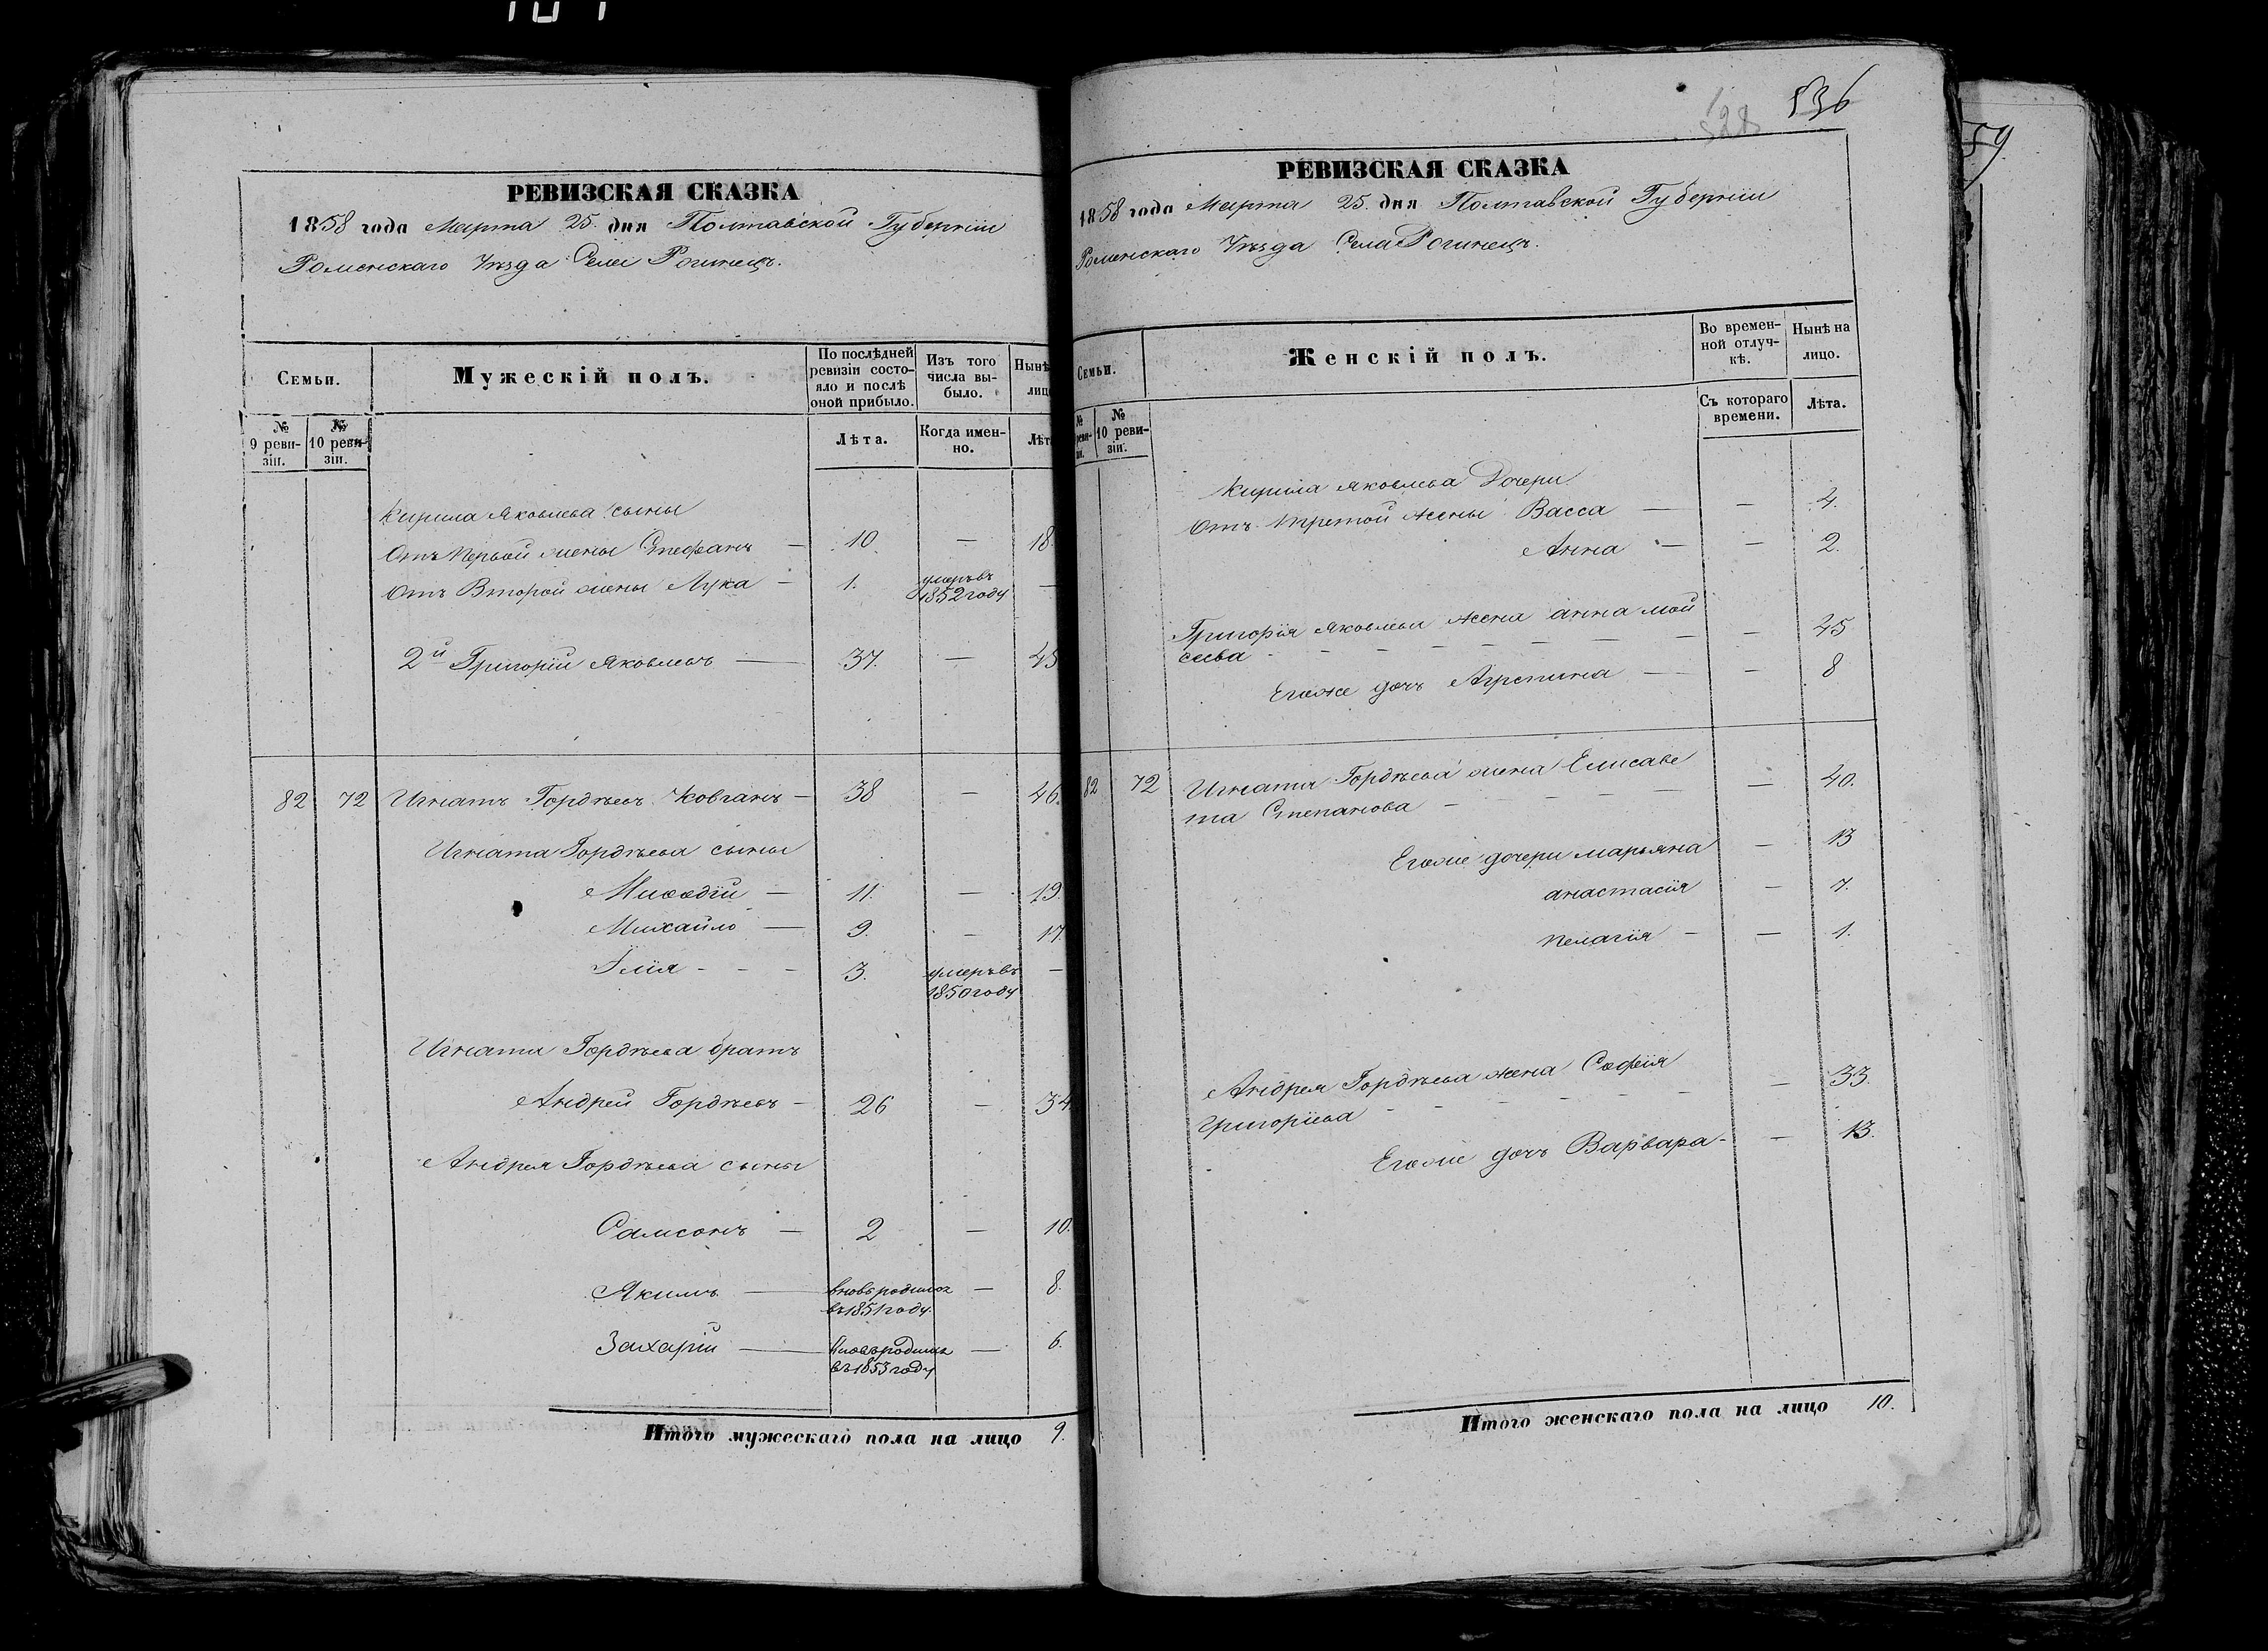 РЕВИЗСКАЯ СКАЗКА
1858 года Марта 25. дня Полтавской Губернiи
Роменскаго Уѣзда Села Рогинецъ.
Семьи.
Мужескiй полъ.
По послѣдней ревизiи состояло и послѣ оной прибыло.
Изъ того числа выбыло.
Нынѣ
лиц
№ 9 ревизiи.
№ 10 ревизiи.
Лѣта.
Когда именно.
Лѣт
Кирила Яковлева сыны
Отъ Первой жены Стефанъ — 10. — 18.
Отъ Второй жены Лука — 1. умеръ въ 1852 году —
2й Григорiй Яковлевъ — 37. — 45
82 72 Игнатъ Гордѣевъ Ковганъ — 38 — 46.
Игната Гордѣева сыны
Мифодiй — 11. — 19.
Михайло — 9. — 17.
Iлiя - - - 3. умеръ въ 1850 году —
Игната Гордѣева братъ
Андрей Гордѣевъ — 26 — 34
Андрея Гордѣева сыны
Самсонъ — 2 — 10.
Якимъ — вновь родился въ 1851 году. — 8.
Захарiй — вновь родился въ 1853 году — 6.
Итого мужескаго пола на лицо 9.
528
536
РЕВИЗСКАЯ СКАЗКА
1858 года Марта 25. дня Полтавской Губернiи
Роменскаго Уѣзда Села Рогинецъ.
Семьи.
Женскiй полъ.
Во временной отлучкѣ.
Нынѣ на лицо.
№ 10 ревизiи.
Съ котораго времени.
Лѣта.
Кирила Яковлева Дочери
Отъ третой жены Васса — — 4.
Анна — — 2.
Григорiя Яковлева жена анна мой
сеева - - - - - - — 45
Егоже дочь Агрепина — — 8
82 72 Игната Гордѣева жена Елисаве
та Степанова - - - - - — 40.
Егоже дочери марьяна — 13
анастасiя — 7.
пелагiя — — 1.
Андрея Гордѣева жена Софiя
Григорiева - - - - - - - — 33.
Егоже дочь Варвара - — 13.
Итого женскаго пола на лицо 10.
59